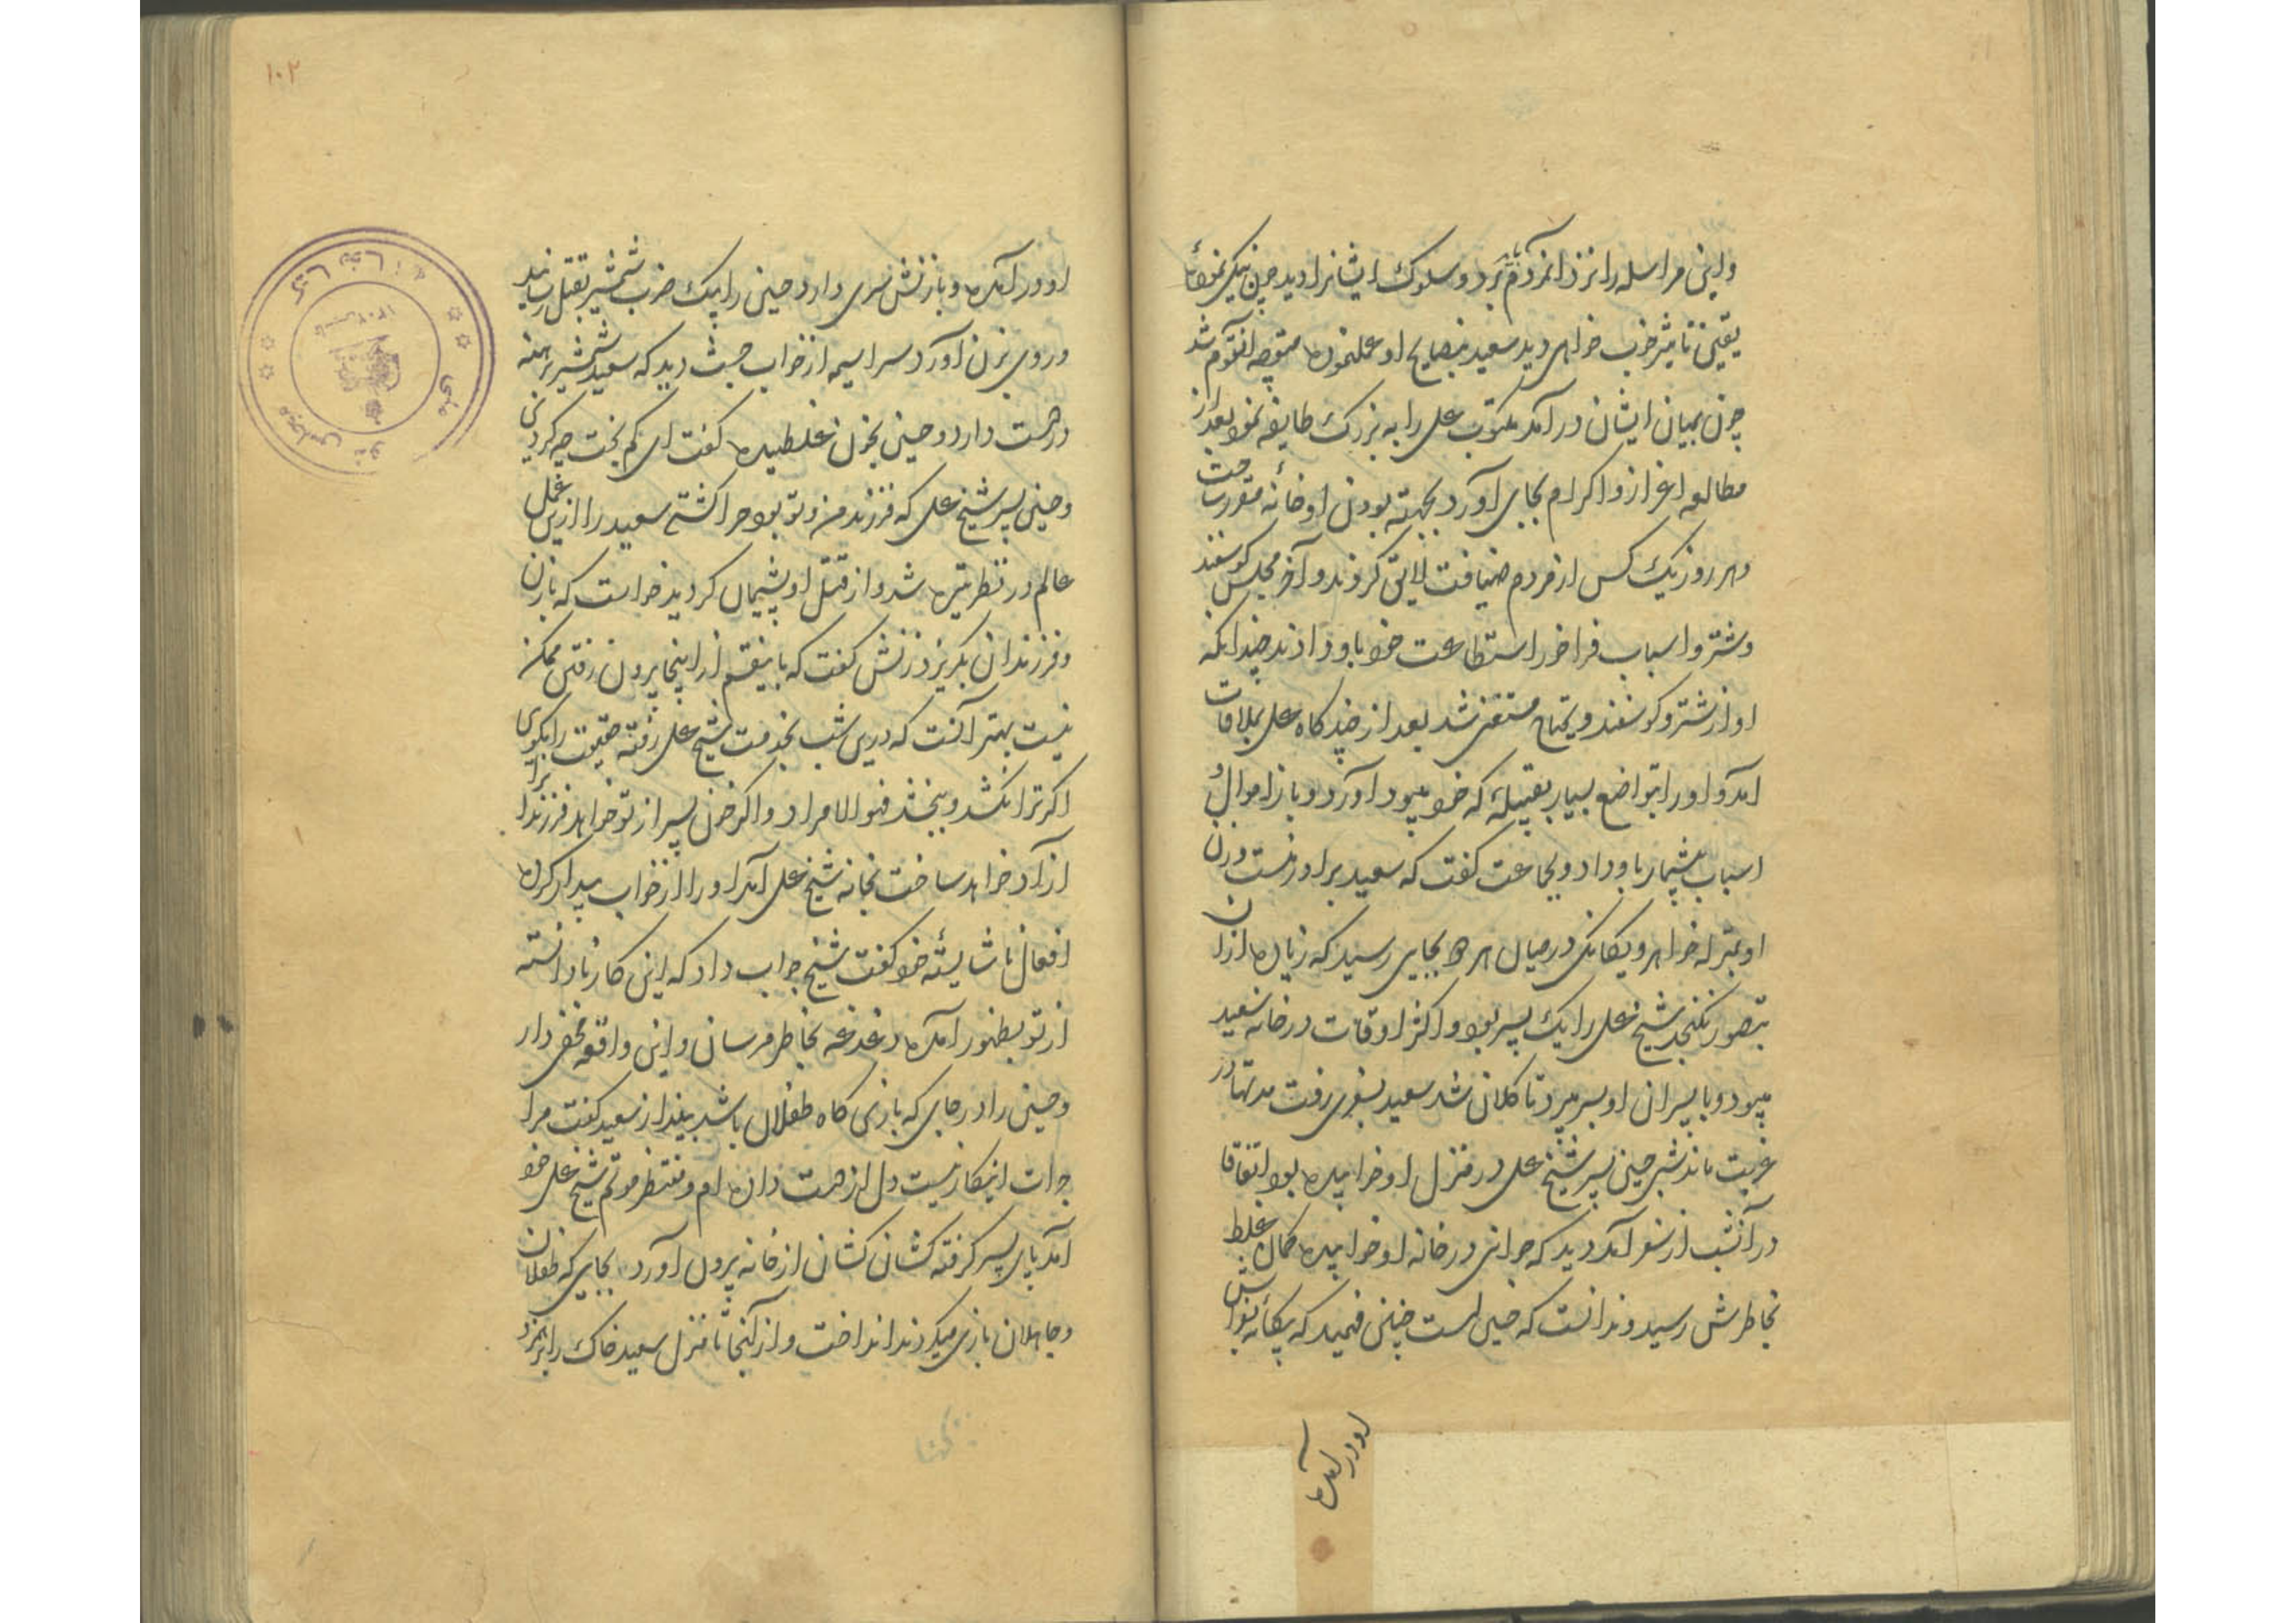 و این مراسله را نزد آنمردم باید برد و سلوک ایشانرا دید چون نیکی نموده
یقین تاثیر خوب خواهی دید سعید بنصایح او عملنموده متوجه آنقوم شد
چون بمیان ایشان در آمد مکتوب علی را به بزرک طایفه نمود بعد از
مطالعه اعزاز و اکرام بجای آورد بجهته بودن او خانهٔ مقرر ساخت
و هر روز یک کس از مردم ضیافت لایق کردند و آخر مجلس کوسفند
و شتر و اسباب فراخور استطاعت خود باو دادند چندانکه
او از شتر و کوسفند و یحتاج مستغنی شد بعد از چند کاه علی بملاقات
آمد و او را بتواضع بسیار بقبیلهٔ که خود میبود آورد و باز اموال و
اسباب بیشمار باو داد و بجماعت کفت که سعید برادر منست و زن
او بمنزله خواهر و یکانکی در میان هر دو بجایی رسید که زیاده از ان
بتصور نکنجد شیخ علی را یک پسر بود و اکثر اوقات در خانه سعید
میبود و با پسران او بسر میبرد تا کلان شد سعید بسفری رفت مدتها در
غربت ماند شبی حنین پسر شیخ علی در منزل او خوابیده بود اتفاقا
در آنشب از سفر آمد دید که جوانی در خانه او خوابیده کمان غلط
بخاطرش رسید و ندانست که حنین است چنین فهمید که بیکانه بخوابش
او در آمده
۱۰۲
او در آمده و با زنش سری دارد حنین را بیک ضرب شمشیر بقتل رسانید
و روی بزن آورد سراسیمه از خواب جست دید که سعید شمشیر برهنه
در دست دارد و حنین بخون غلطیده کفت ای کم بخت چه کردی
و حنین پسر شیخ علی که فرزند من و تو بود چرا کشتی سعید را ازین عمل
عالم در نظر تیره شد و از قتل او پشیمان کردید خواست که با زن
و فرزندان بکریزد زنش کفت که باینقسم از اینجا بیرون رفتن ممکن
نیست بهتر آنست که درین شب بخدمت شیخ علی رفته حقیقت را بکوی
اکر ترا نکشد و ببخشد فهو المراد و اکر خون پسر از تو خواهد فرزندان ترا
آزاد خواهد ساخت بخانه شیخ علی آمد او را از خواب بیدار کرده
افعال ناشایستهٔ خود کفت شیخ جواب داد که این کار نادانسته
از تو بظهور آمده دغدغه بخاطر مرسان و این واقعه مخفی دار
و حنین را در جای که بازی کاه طفلان باشد بینداز سعید کفت مرا
جرات اینکار نیست دل از دست داده ام و منتظر موتم شیخ علی خود
آمد پای پسر کرفته کشان کشان از خانه بیرون آورد بجایی که طفلان
و جاهلان بازی میکردند انداخت و از آنجا تا منزل سعید خاک را برهمزد